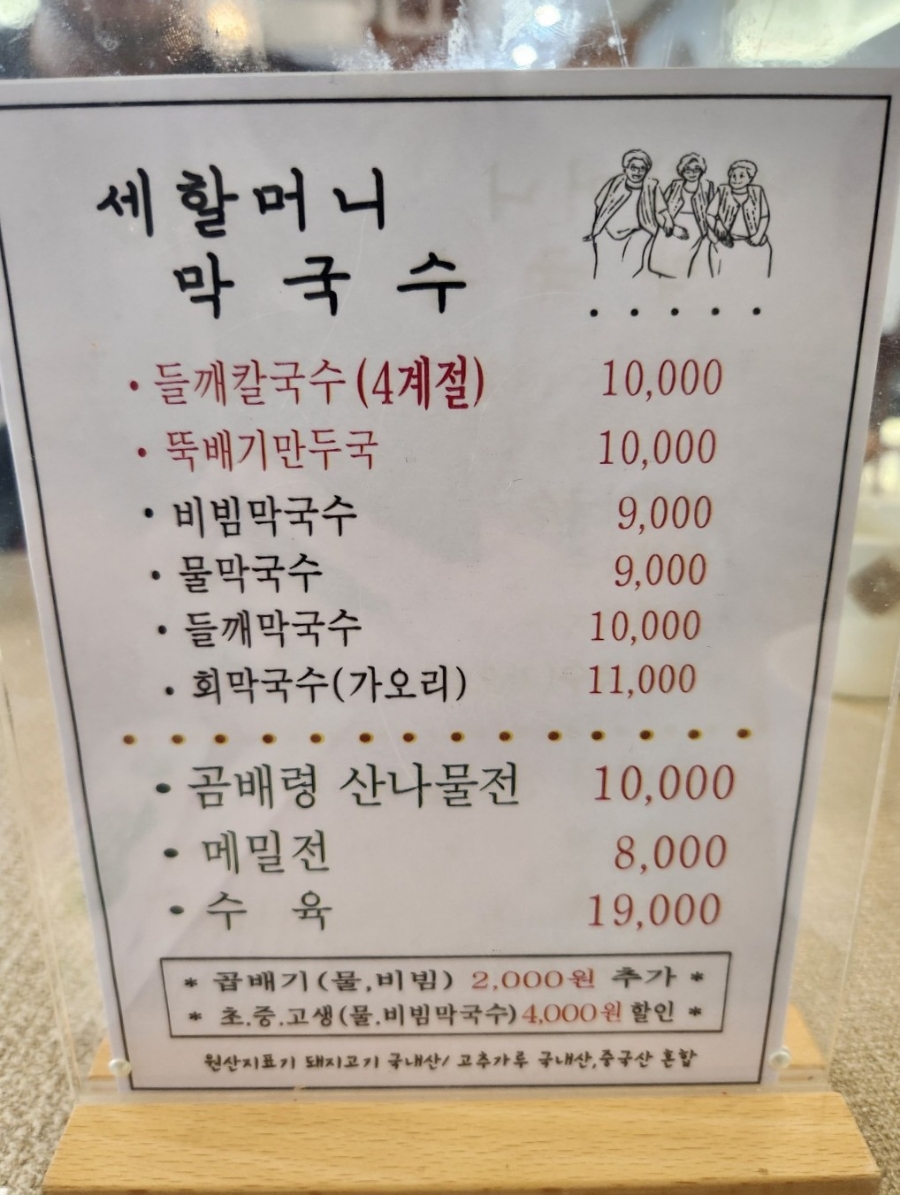 세할머니
막국수
• 들깨칼국수(4계절) 10,000
• 뚝배기만두국 10,000
• 비빔막국수 9,000
• 물막국수 9,000
• 들깨막국수 10,000
• 회막국수(가오리) 11,000
• 곰배령 산나물전 10,000
• 메밀전 8,000
• 수 육 19,000
* 곱배기(물,비빔) 2,000원 추가 *
* 초.중.고생(물.비빔막국수) 4,000원 할인 *
원산지표기 돼지고기 국내산/ 고추가루 국내산,중국산 혼합